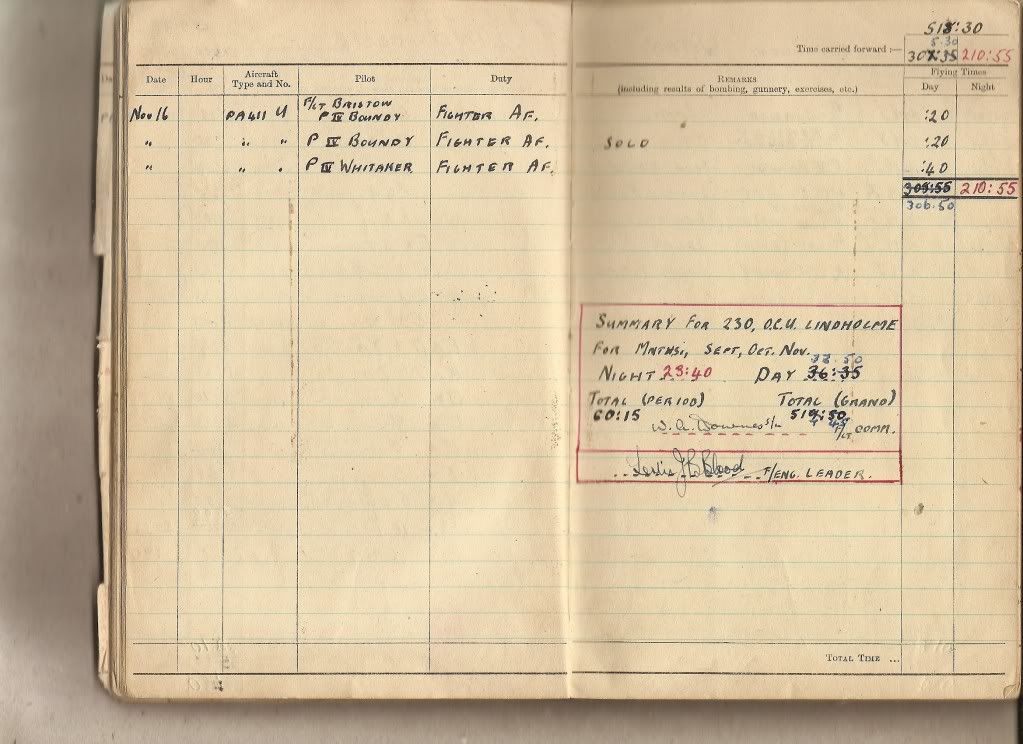 518:30
Time carried forward :—
5.30
307:35 210:55
Date Hour Aircraft Type and No. Pilot Duty
REMARKS
(including results of bombing, gunnery, exercises, etc.)
Flying Times
Day Night
Nov 16 PA411 U F/LT BRISTOW
P IV BOUNDY FIGHTER AF. :20
" " " P IV BOUNDY FIGHTER AF. SOLO :20
" " " P IV WHITAKER FIGHTER AF. :40
210:55
306.50
SUMMARY FOR 230, O.C.U. LINDHOLME
FOR MNTHS:, SEPT, OCT. NOV.
NIGHT 23:40 DAY 36:35
TOTAL (PERIOD) TOTAL (GRAND)
60:15 519:50
W. A. Downes S/L F/LT COMM.
Leslie J B Blood F/ENG. LEADER.
TOTAL TIME ...